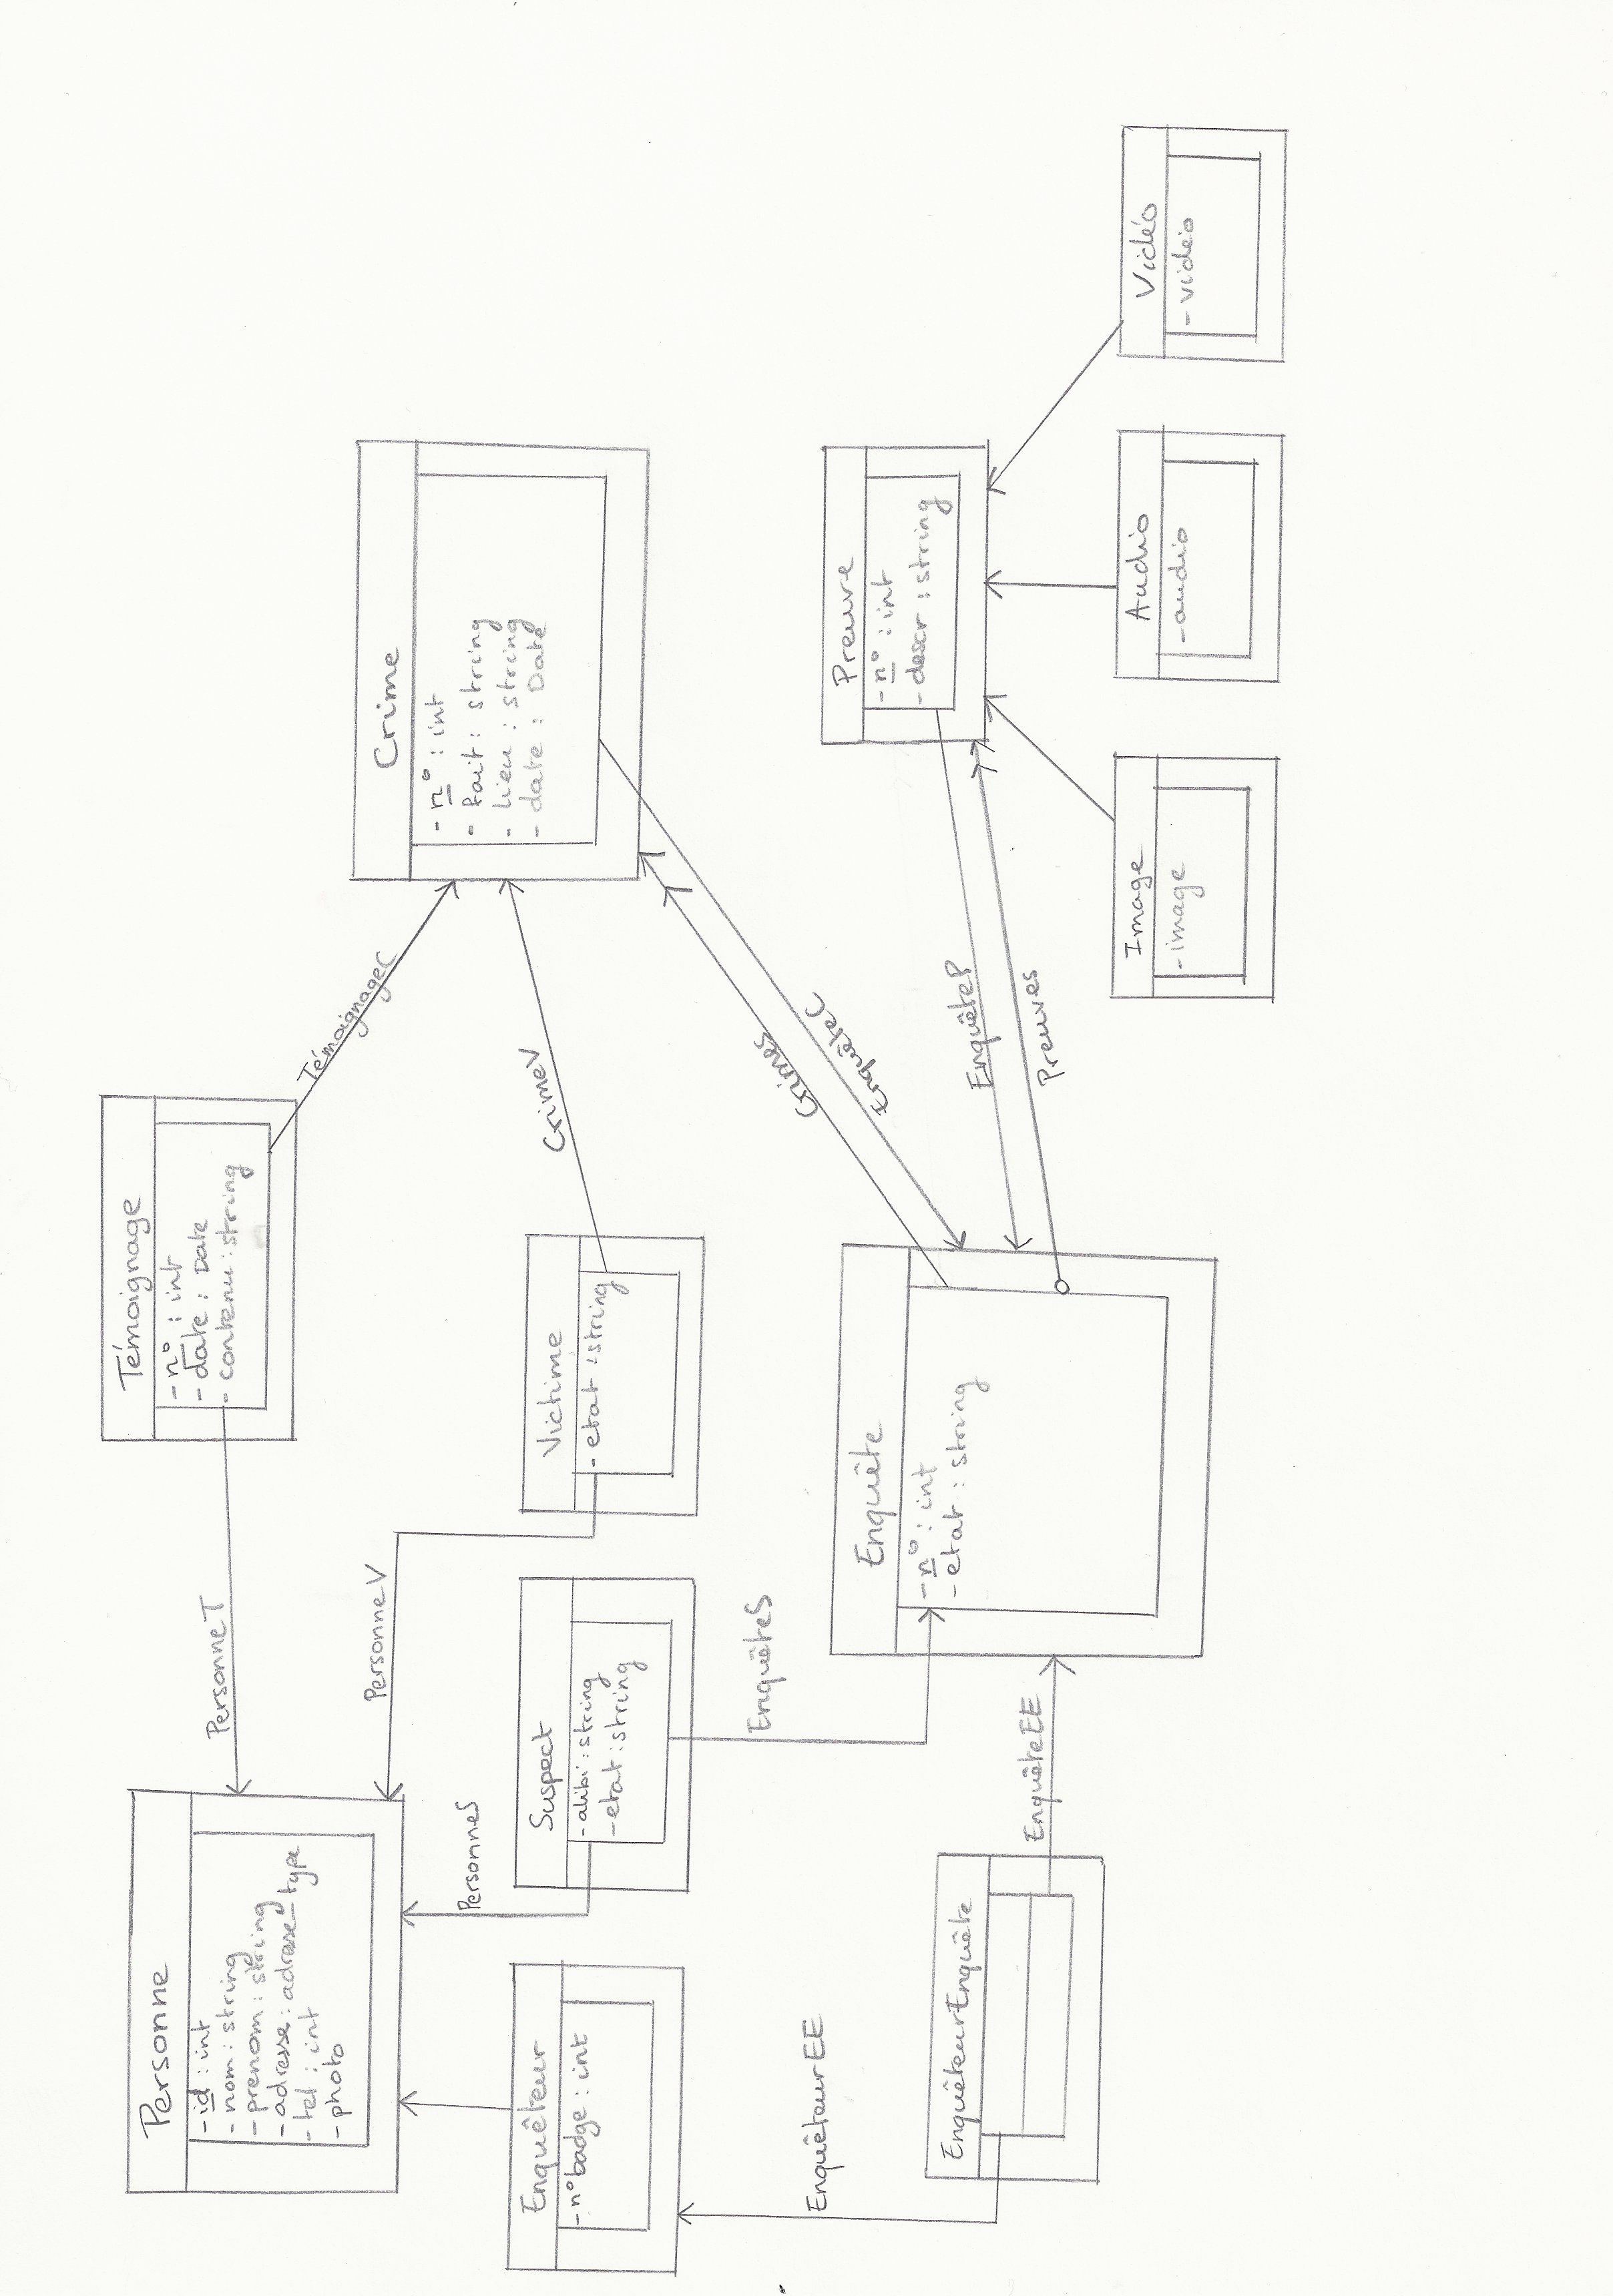 Personne
- id : int
- nom : string
- prenom : string
- adresse : adresse_type
- tel : int
- photo
PersonneT
Témoignage
- n° : int
- date : Date
- contenu : string
TémoignageC
PersonneV
Crime
- n° : int
- fait : string
- lieu : string
- date : Date
PersonneS
Enquêteur
- n° badge : int
Suspect
- alibi : string
- etat : string
Victime
- etat : string
CrimeV
EnquêteS
EnquêteurEE
Crimes
EnquêteC
Enquête
- n° : int
- etat : string
Preuve
- n° : int
- descr : string
EnquêteurEnquête
EnquêteEE
EnquêteP
Preuves
Image
- image
Audio
- audio
Vidéo
- video